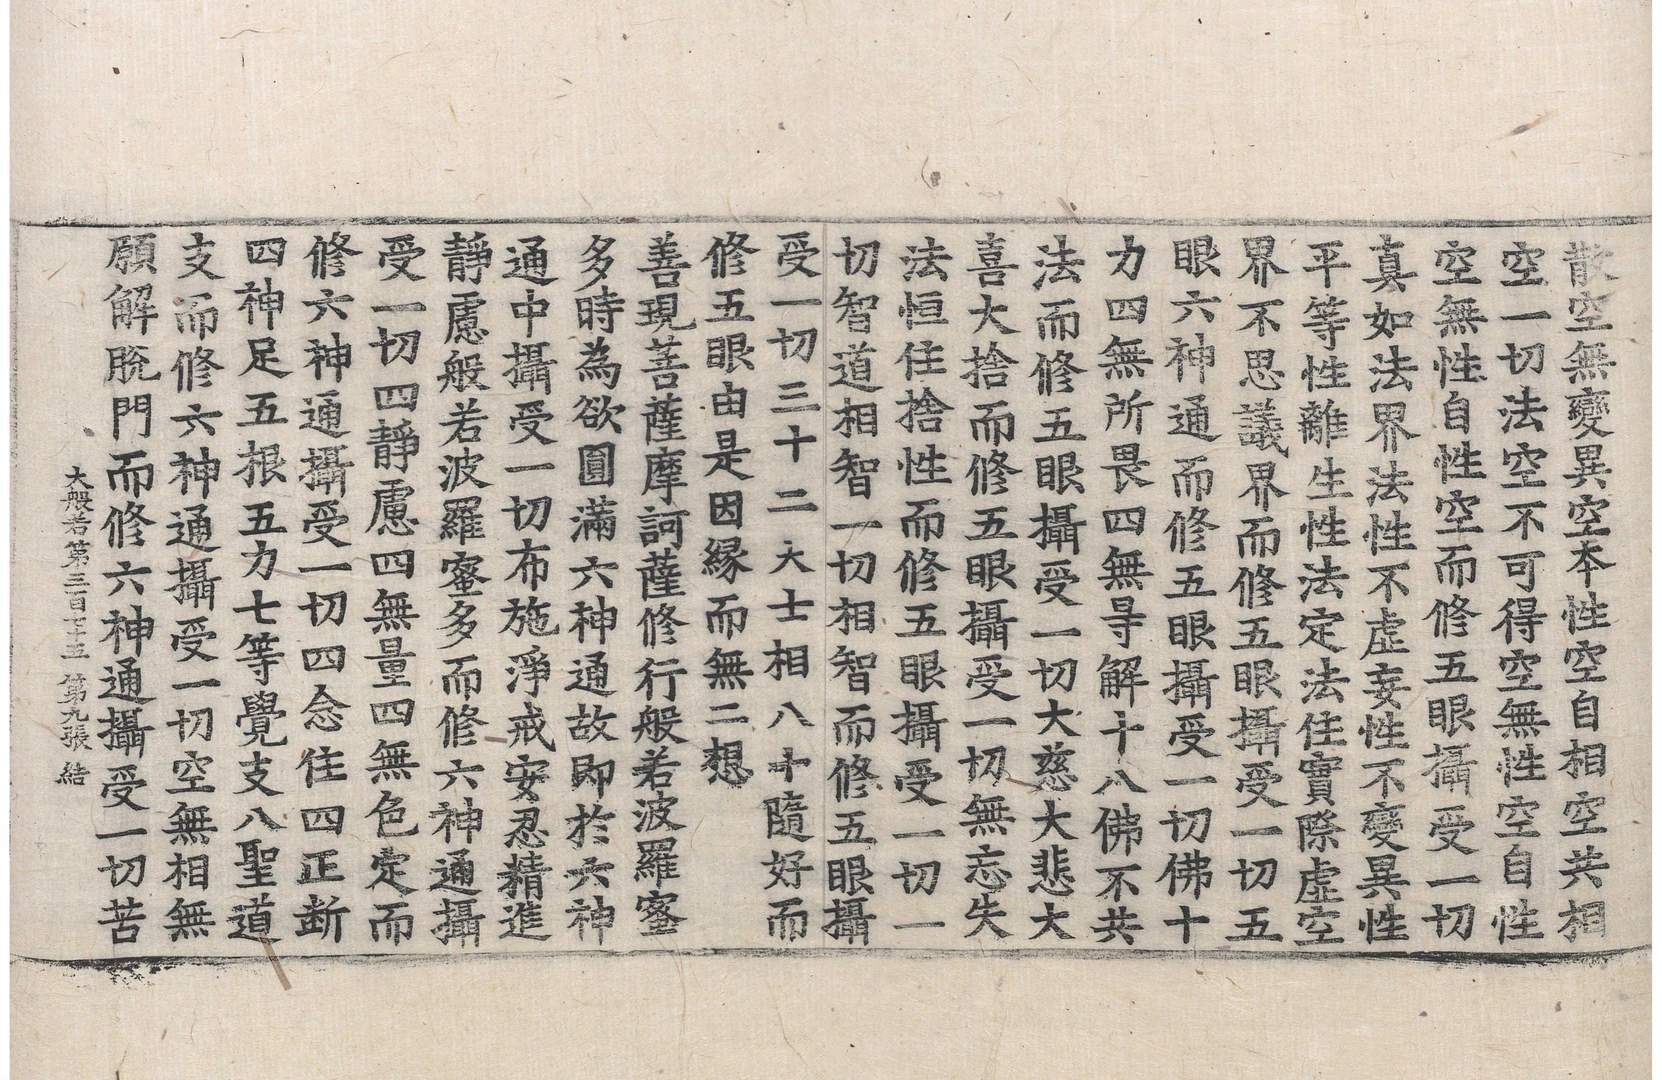 散空無變異空本性空自相空共相
空一切法空不可得空無性空自性
空無性自性空而修五眼攝受一切
真如法界法性不虛妄性不變異性
平等性離生性法定法住實際虛空
界不思議界而修五眼攝受一切五
眼六神通而修五眼攝受一切佛十
力四無所畏四無㝵解十八佛不共
法而修五眼攝受一切大慈大悲大
喜大捨而修五眼攝受一切無忘失
法恒住捨性而修五眼攝受一切一
切智道相智一切相智而修五眼攝
受一切三十二大士相八十隨好而
修五眼由是因緣而無二想
善現菩薩摩訶薩修行般若波羅蜜
多時為欲圓滿六神通故即於六神
通中攝受一切布施淨戒安忍精進
靜慮般若波羅蜜多而修六神通攝
受一切四靜慮四無量四無色定而
修六神通攝受一切四念住四正断
四神足五根五力七等覺支八聖道
支而修六神通攝受一切空無相無
願解脫門而修六神通攝受一切苦
大般若第三百七十五 第九張 結